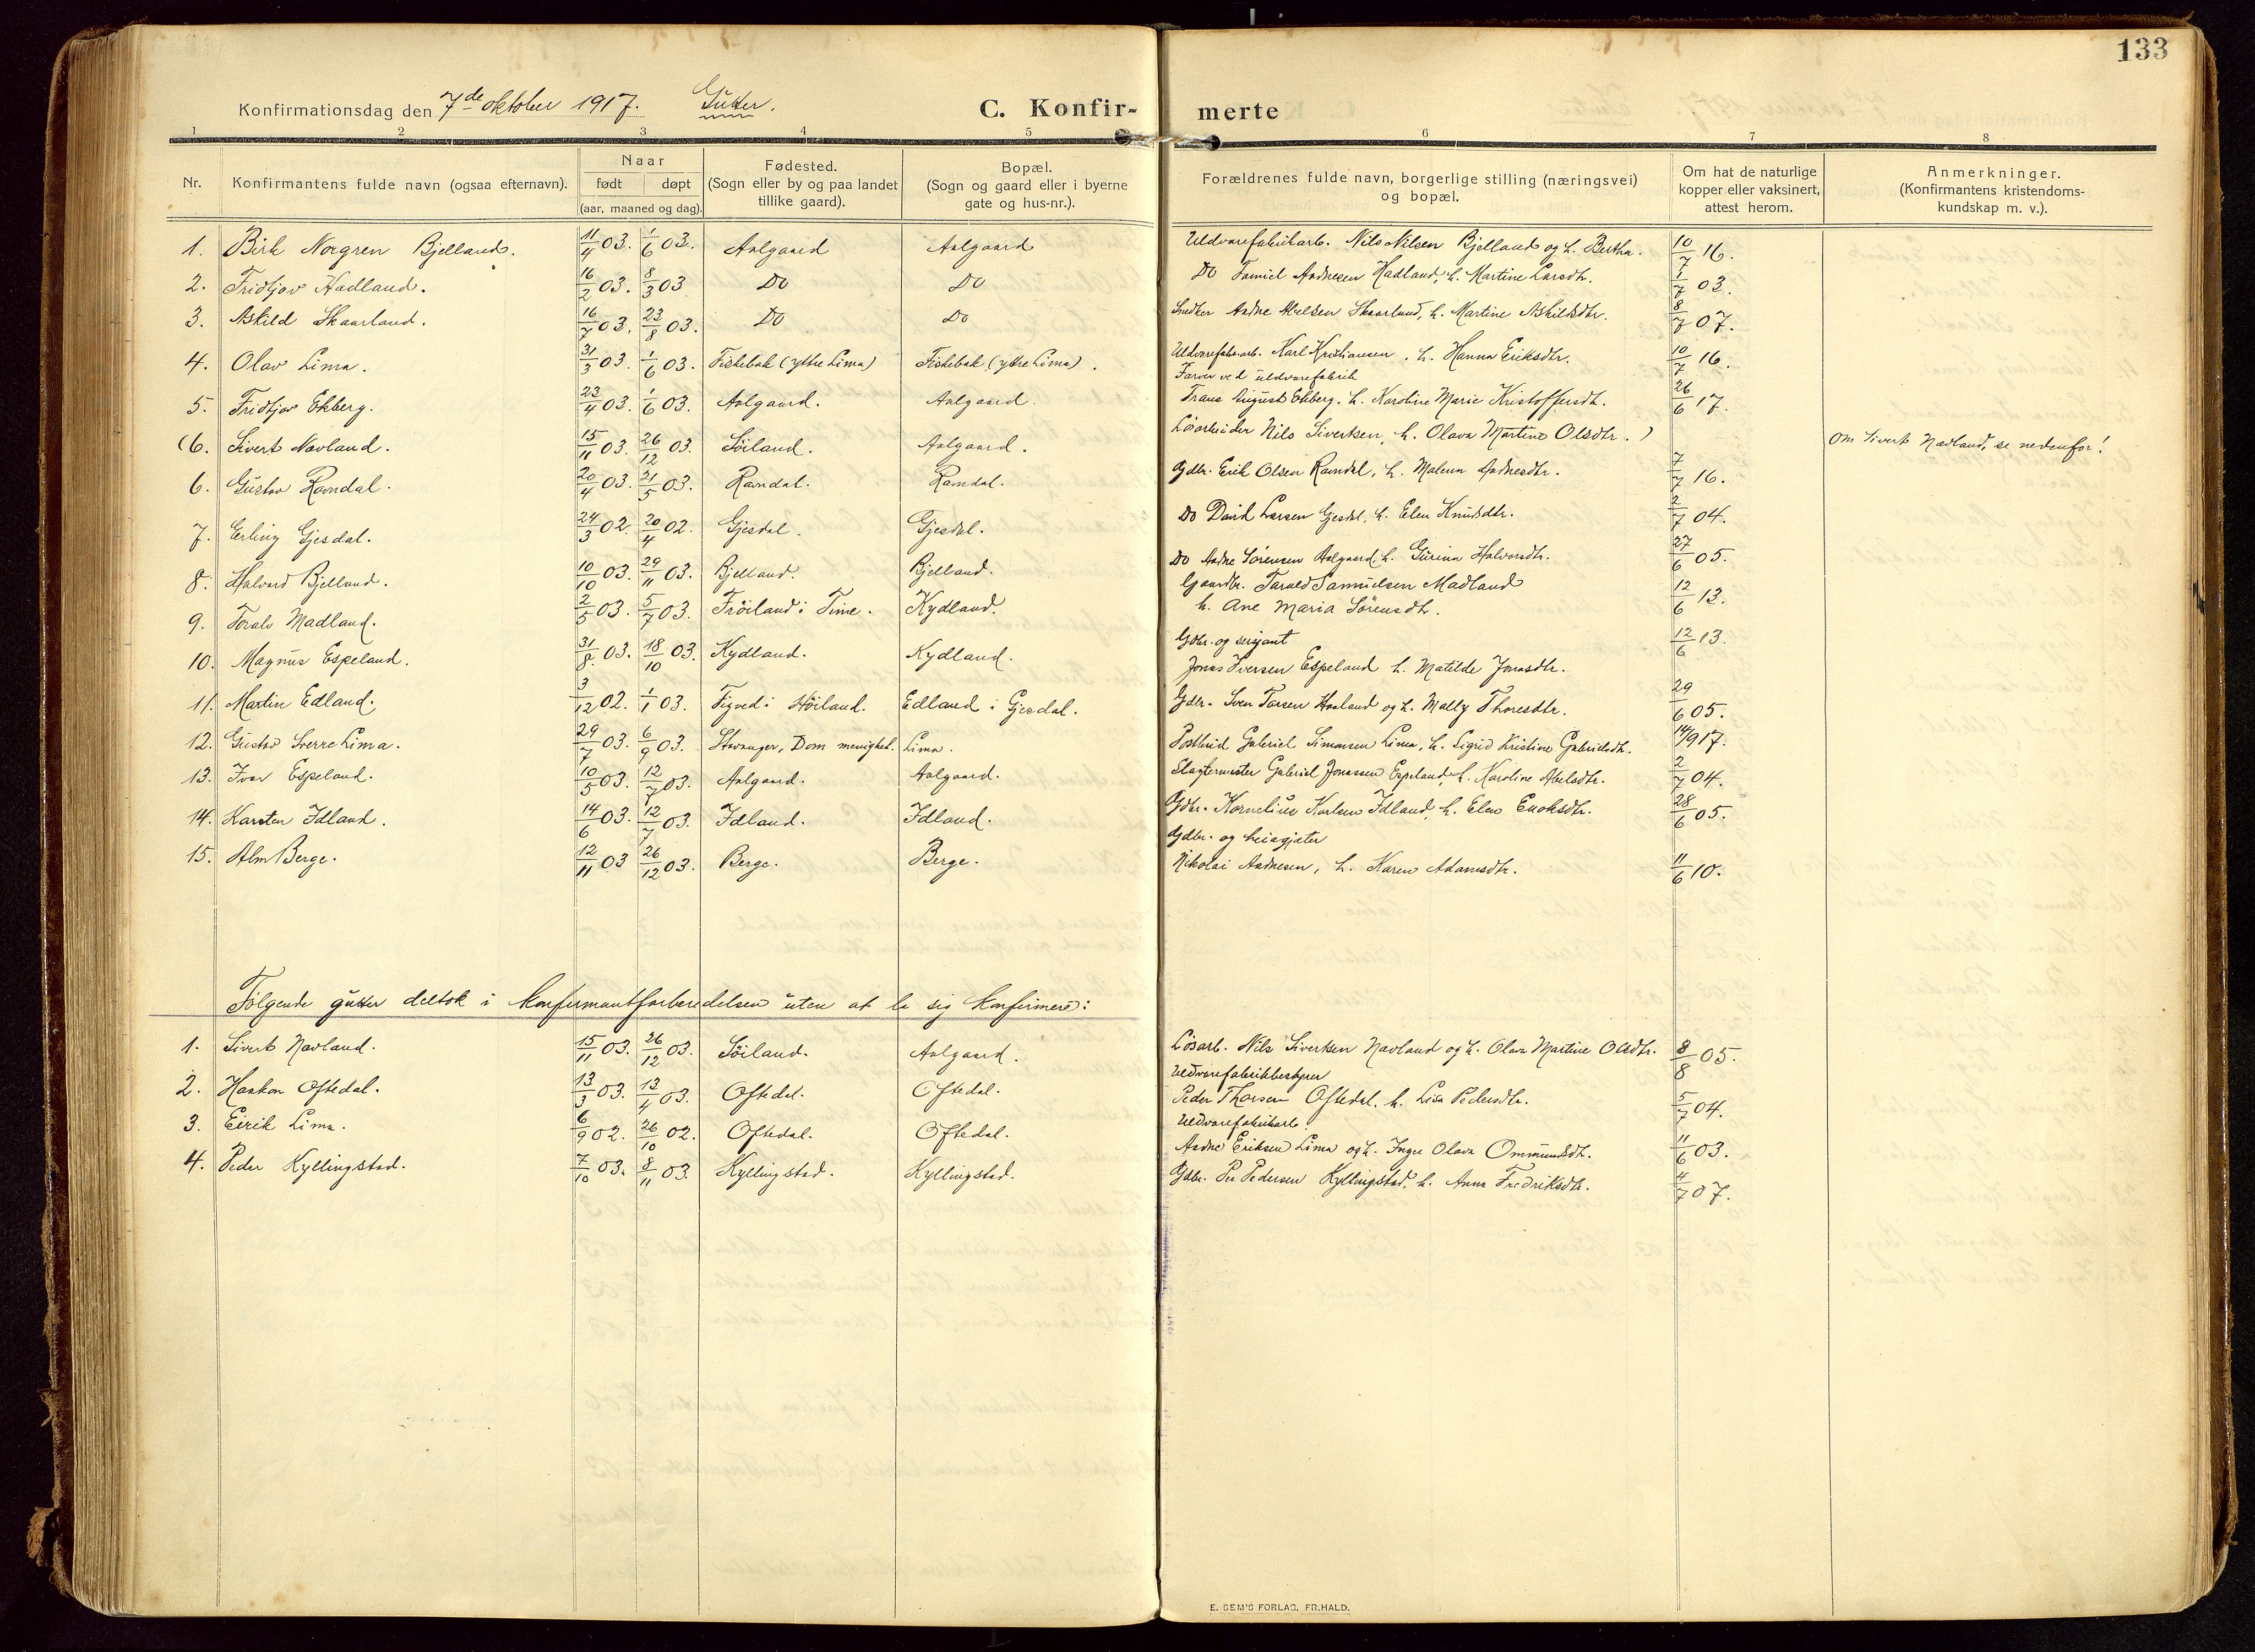 133
Konfirmationsdag den 7de oktober 1917. Gutter.
C. Konfir- merte
1 2 3 4 5 6 7 8
Nr.
Konfirmantens fulde navn (ogsaa efternavn).
Naar
født døpt
(aar, maaned og dag).
Fødested.
(Sogn eller by og paa landet
tillike gaard).
Bopæl.
(Sogn og gaard eller i byerne
gate og hus-nr.).
Forældrenes fulde navn, borgerlige stilling (næringsvei)
og bopæl.
Om hat de naturlige
kopper eller vaksinert,
attest herom.
Anmerkninger.
(Konfirmantens kristendoms-
kundskap m. v.).
1. Birk Norgren Bjelland. 11/4 03. 1/6 03. Aalgaard Aalgaard Uldvarefabrikarb. Nils Nilsen Bjelland og h. Bertha. 10/7 16.
2. Fridtjov Hadland. 16/2 03. 8/3 03 Do Do Do Daniel Andresen Hadland, h. Martine Larsdtr. 1/7 03.
3. Askild Skaarland. 16/7 03. 23/8 03. Do Do Snedker Andre Abelsen Skaarland, h. Martine Askildsdtr. 8/7 07.
4. Olav Lima. 31/3 03. 1/6 03. Fiskebæk (ytre Lima) Fiskebæk (ytre Lima). Uldvarefabr.arb. Karl Kristiansen, h. Hanna Eriksdtr. 10/7 16.
Farver ved uldvarefabrik
5. Fridtjov Ekberg. 23/4 03. 1/6 03. Aalgaard. Aalgaard. Frans August Ekberg. h. Karoline Marie Kristoffersdtr. 26/6 17.
(6. Sivert Navland. 15/11 03. 26/12 03. Söiland. Aalgaard. Lösarbeider Nils Sivertsen, h. Olava Martine Olsdtr.) Om Sivert Navland, se nedenfor!
6. Gustav Ramdal. 20/4 03. 21/5 03. Ramdal. Ramdal. Gdbr. Erik Olsen Ramdal, h. Malena Andresdtr. 7/7 16.
7. Erling Gjesdal. 24/3 02. 20/4 02. Gjesdal. Gjesdal. Do David Larsen Gjesdal, h. Elen Knudsdtr. 2/7 04.
8. Halvard Bjelland. 10/10 03. 29/11 03. Bjelland. Bjelland. Do Andre Sörensen Aalgaard, h. Gurina Halvorsdtr. 27/6 05.
9. Toralv Madland. 2/5 03. 5/7 03. Fröiland i Time. Kydland. Gaardbr. Tarald Samuelsen Madland
h. Ane Maria Sörensdtr. 12/6 13.
10. Magnus Espeland. 31/8 03. 18/10 03. Kydland. Kydland. Gdbr. og sersjant
Jonas Iversen Espeland h. Matilde Jonasdtr. 12/6 13.
11. Martin Edland. 3/12 02. 1/1 03. Figved i Höiland. Edland i Gjesdal. Gdbr. Sven Torsen Haaland og h. Mally Thoresdtr. 29/6 05.
12. Gustav Sverre Lima. 29/7 03. 6/9 03. Stavanger, Dom menighet. Lima. Postbud Gabriel Simonsen Lima, h. Sigrid Kristine Gabrielsdtr. 14/9 17.
13. Ivar Espeland. 10/5 03. 12/7 03. Aalgaard. Aalgaard. Slagtermester Gabriel Jonassen Espeland, h. Karoline Abelsdtr. 2/7 04.
14. Karsten Idland. 14/6 03. 12/7 03. Idland. Idland. Gdbr. Kornelius Karlsen Idland, h. Elen Enoksdtr. 28/6 05.
15. Alm Berge. 12/11 03 26/12 03. Berge. Berge. Gdbr. og heiegjæter
Nikolai Andresen, h. Karen Adamsdtr. 11/6 10.
Følgende gutter deltok i konfirmantforberedelsen uten at la sig konfirmere:
1. Sivert Navland. 15/11 03. 26/12 03. Söiland. Aalgaard. Lösarb. Nils Sivertsen Navland og h. Olava Martine Olsdtr. 8/8 05.
2. Haakon Oftedal. 13/3 03. 13/4 03. Oftedal. Oftedal. Uldvarefabrikbestyrer
Peder Thorsen Oftedal. h. Lisa Pedersdtr. 5/7 04.
3. Eirik Lima. 6/9 02. 26/10 02. Oftedal. Oftedal. Uldvarefabrikarb.
Andre Eriksen Lima og h. Inger Olava Ommundsdtr. 11/6 03.
4. Peder Kyllingstad. 7/10 03. 8/11 03. Kyllingstad. Kyllingstad. Gdbr. Per Pedersen Kyllingstad, h. Anna Fredriksdtr. 4/7 07.
E. SEM'S FORLAG, FR.HALD.